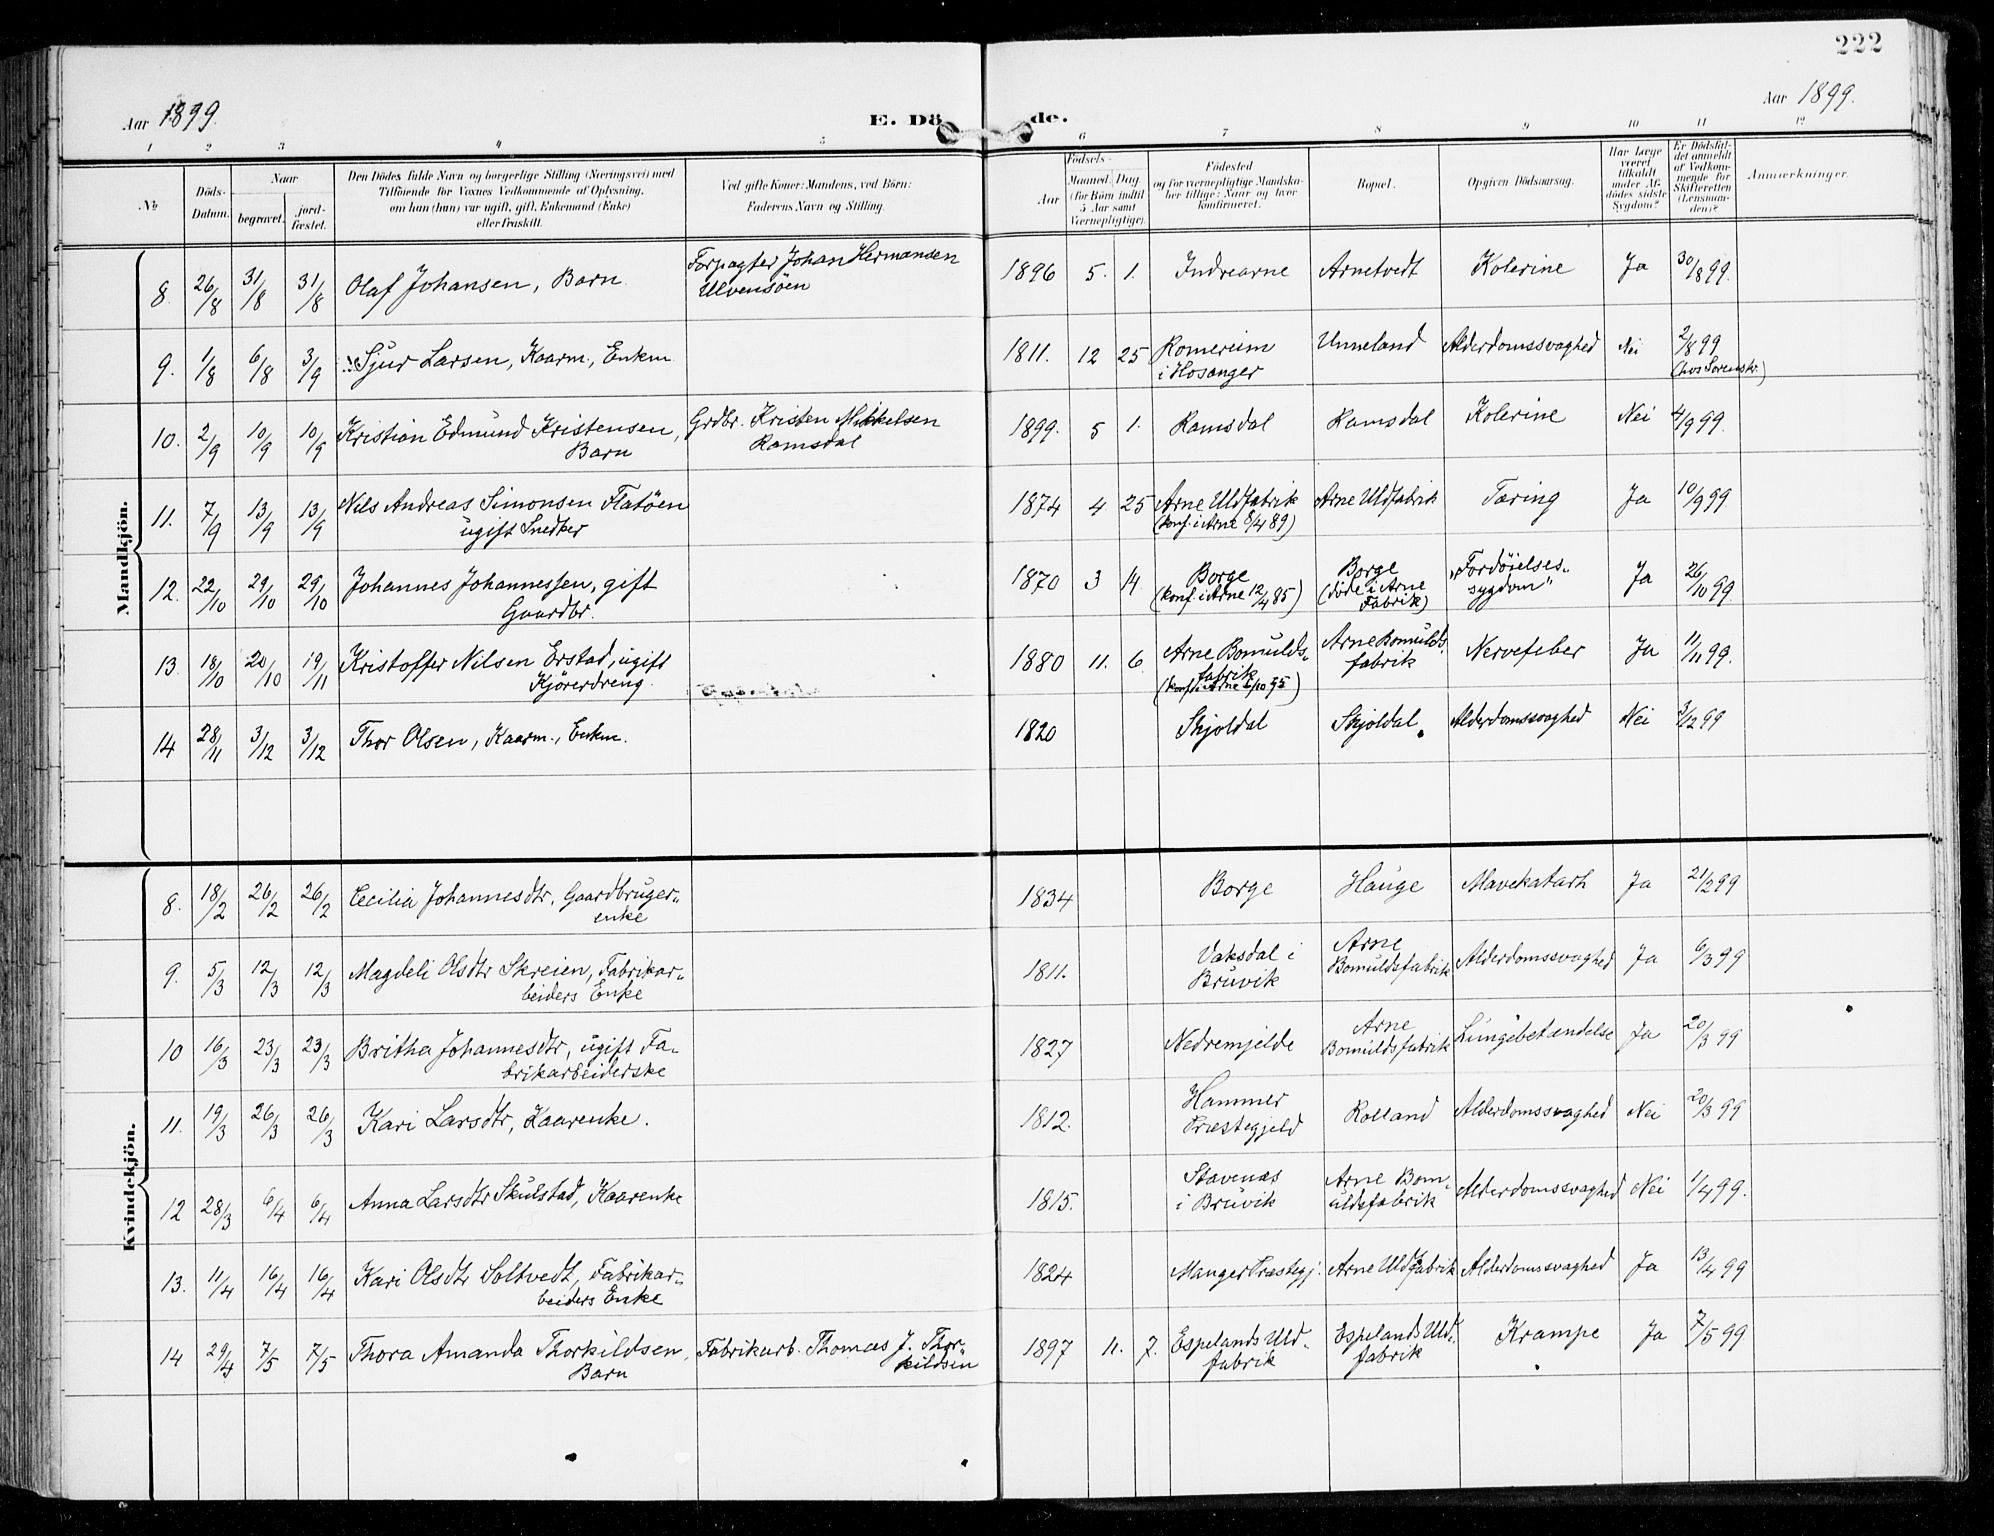 222
Aar 1899.
E. Döde.
Aar 1899.
1 2 3 4 5 6 7 8 9 10 11 12
No
Döds-Datum.
Naar
begravet.
jord-fæstet.
Den Dödes fulde Navn og borgerlige Stilling (Næringsvei) med
Tilföiende for Voxnes Vedkommende af Oplysning,
om han (hun) var ugift, gift, Enkemand (Enke)
eller fraskilt.
Ved gifte Koner: Mandens, ved Börn:
Faderens Navn og Stilling.
Födsels-
Aar
Maaned. Dag.
(for Börn indtil
5 Aar samt
Værnepligtige).
Födested
og for værnepligtige Mandska-
ber tillige: Naar og hvor
konfirmeret.
Bopæl.
Opgiven Dödsaarsag.
Har Læge
været
tilkaldt
under Af-
dödes sidste
Sygdom?
Er Dödsfal-
det anmeldt
af Vedkom-
mende for
Skifteretten
(Lensman-
den)?
Anmærkninger.
Mandkjön.
8. 26/8 31/8 31/8 Olaf Johansen, Barn. Forpagter Johan Hermansen 1896 5. 1. Indrearne Arnetvedt Kolerine Ja 30/8 99.
Ulvensöen
9. 1/8 6/8 3/9 Sjur Larsen, Kaarm., Enkm. 1811. 12 25 Romereim Unneland Alderdomssvaghed Nei 2/8 99
i Hosanger (hos Sorenskr.)
10. 2/9 10/9 10/9 Kristian Edmund Kristensen, Grdbr. Kristen Mikkelsen 1899. 5 1. Ramsdal Ramsdal Kolerine Nei 4/9 99.
Barn Ramsdal
11. 7/9 13/9 13/9 Nils Andreas Simonsen Flatöen 1874 4 25 Arne Uldfabrik Arne Uldfabrik Tæring Ja 10/9 99
ugift Snedker (konf. i Arne 8/4 89)
12. 22/10 29/10 29/10 Johannes Johannessen, gift 1870 3 14 Borge Borge "Fordöielses- Ja 26/10 99.
Gaardbr. (konf. i Arne 12/4 85) (döde i Arne sygdom"
Fabrik)
13 18/10 20/10 19/11 Kristoffer Nilsen Erstad, ugift 1880 11. 6. Arne Bomulds- Arne Bomulds- Nervefeber Ja 11/11 99.
Kjörerdreng. fabrik fabrik
(konf. i Arne 95)
14 28/11 3/12 3/12 Thor Olsen, Kaarm., Enkm. 1820 Skjoldal Skjoldal. Alderdomssvaghed Nei 3/12 99
Kvindekjön.
8. 18/2 26/2 26/2 Cecilia Johannesdtr, Gaardbruger- 1834 Borge Hauge Mavekatarh Ja 21/2 99
enke
9. 5/3 12/3 12/3 Magdeli Olsdtr Skreien, Fabrikar- 1811. Vaksdal i Arne Alderdomssvaghed Ja 6/3 99
beiders Enke Bruvik Bomuldsfabrik
10 16/3 23/3 23/3 Britha Johannesdtr, ugift Fa- 1827 Nedremjelde Arne Lungebetændelse Ja 20/3 99
brikarbeiderske Bomuldsfabrik
11. 19/3 26/3 26/3 Kari Larsdtr, Kaarenke. 1812. Hammer Rolland Alderdomssvaghed Nei 20/3 99
Præstegjeld
12 28/3 6/4 6/4 Anna Larsdtr Skulstad, Kaarenke 1815. Stavenæs Arne Bom- Alderdomssvaghed Nei 1/4 99.
i Bruvik uldsfabrik
13. 11/4 16/4 16/4 Kari Olsdtr Soltvedt, Fabrikar- 1824 Manger Præstegj. Arne Uldfabrik Alderdomssvaghed Ja 13/4 99
beiders Enke
14 29/4 7/5 7/5 Thora Amanda Thorkildsen, Fabrikarb. Thomas J. Thor- 1897 11. 7. Espelands Uld- Espelands Uld- Krampe Ja 7/5 99
Barn kildsen fabrik fabrik